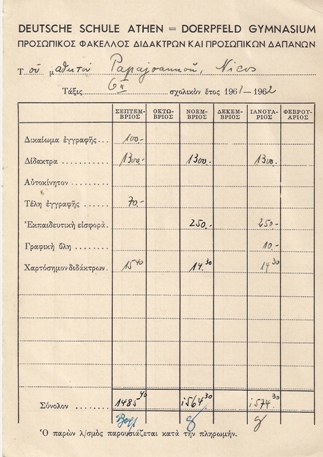 DEUTSCHE SCHULE ATHEN = DOERPFELD GYMNASIUM
ΠΡΟΣΩΠΙΚΟΣ ΦΑΚΕΛΛΟΣ ΔΙΔΑΚΤΡΩΝ ΚΑΙ ΠΡΟΣΩΠΙΚΩΝ ΔΑΠΑΝΩΝ
Τοῦ μαθητοῦ Papajoannou, Nicos
Τάξις 6η σχολικὸν ἔτος 1961-1962
ΣΕΠΤΕΜΒΡΙΟΣ ΟΚΤΩΒΡΙΟΣ ΝΟΕΜΒΡΙΟΣ ΔΕΚΕΜΒΡΙΟΣ ΙΑΝΟΥΑΡΙΟΣ ΦΕΒΡΟΥΑΡΙΟΣ
Δικαίωμα ἐγγραφῆς 100.-
Δίδακτρα 1300.- 1300.- 1300.-
Αὐτοκίνητον
Τέλη ἐγγραφῆς 70.-
Ἐκπαιδευτικὴ εἰσφορά 250.- 250.-
Γραφικὴ ὕλη 10.-
Χαρτόσημον διδάκτρων 15.40 14.30 14.30
Σύνολον 1485.40 1564.30 1574.30
Ὁ παρὼν λ)σμὸς παρουσιάζεται κατὰ τὴν πληρωμήν.